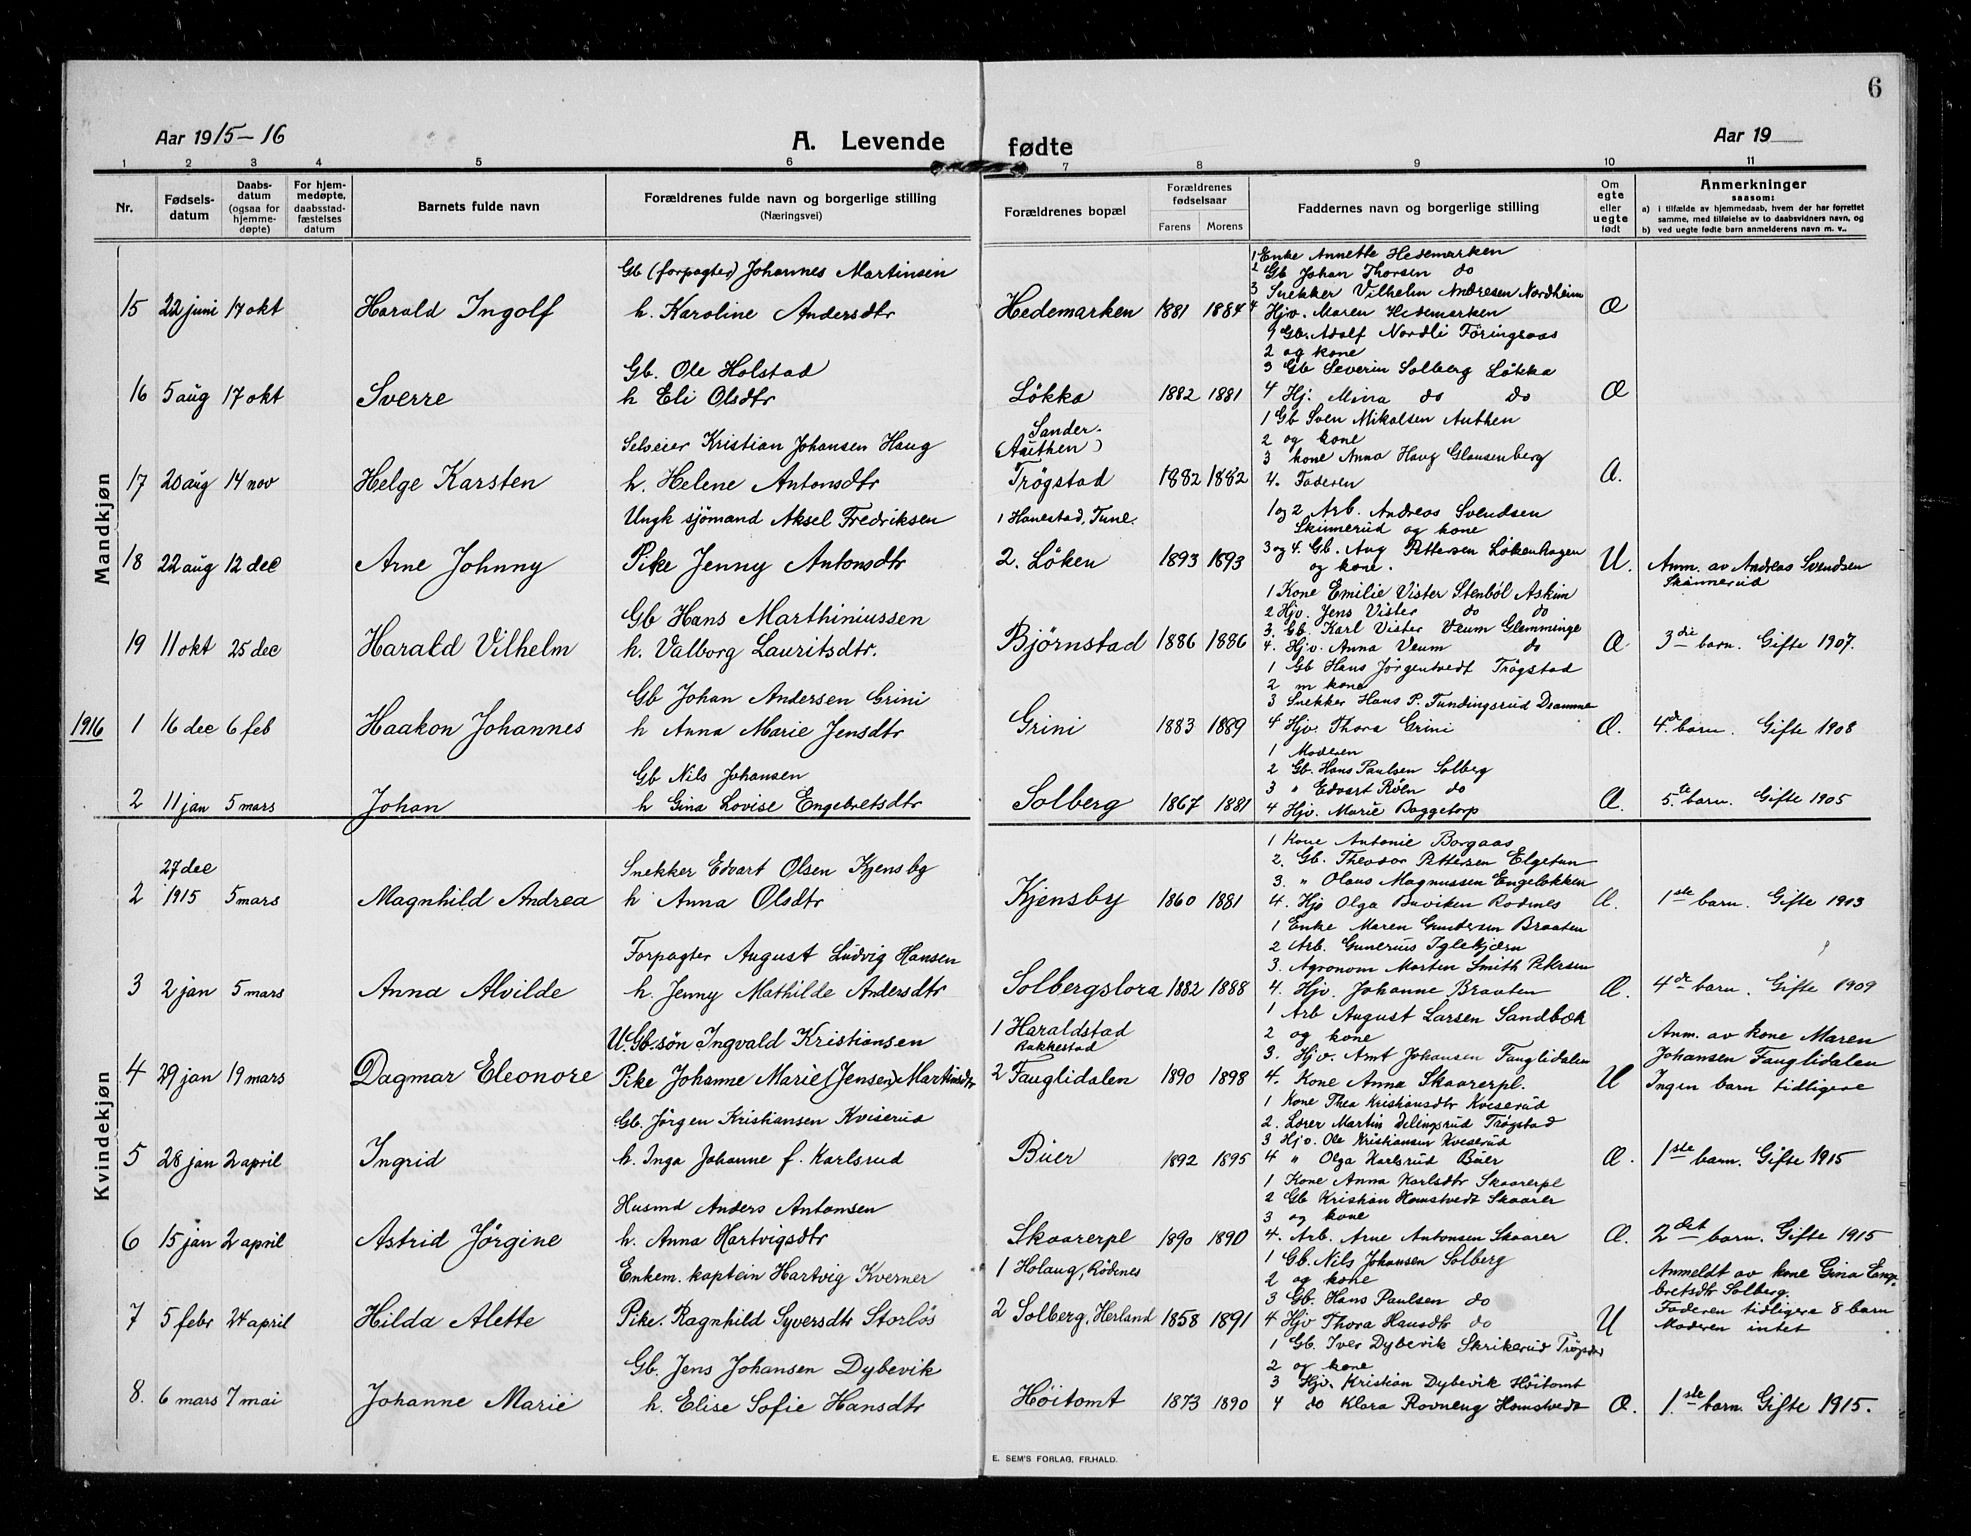 6
Aar 1915–16
A. Levende fødte
Aar 19
1 2 3 4 5 6 7 8 9 10 11
Nr.
Fødsels-
datum
Daabs-
datum
(ogsaa for
hjemme-
døpte)
For hjem-
medøpte,
daabsstad-
fæstelses
datum
Barnets fulde navn
Forældrenes fulde navn og borgerlige stilling
(Næringsvei)
Forældrenes bopæl
Forældrenes
fødselsaar
Farens Morens
Faddernes navn og borgerlige stilling
Om
egte
eller
uegte
født
Anmerkninger
saasom:
a) i tilfælde av hjemmedaab, hvem der har forrettet
samme, med tilføielse av to daabsvidners navn, og
b) ved uegte fødte barn anmelderens navn m. v..
Mandkjøn
Gb (forpagter) Johannes Martinsen
15 22 juni 17 okt Harald Ingolf h. Karoline Andersdtr Hedemarken 1881 1884 Æ
1 Enke Annette Hedemarken
2 Gb Johan Thorsen do
3 Snekker Vilhelm Andresen Nordheim
4 Hjv. Maren Hedemarken
Gb. Ole Holstad
16 5 aug 17 okt Sverre h Eli Olsdtr Løkka 1882 1881 Æ
1 Gb. Adolf Nordli Føringsaas
2 og kone
3 Gb Severin Solberg Løkka
4 Hj. Mina do do
Selveier Kristian Johansen Haug
Sander.
(Authen)
17 20 aug 14 nov Helge Karsten h. Helene Antonsdtr Trøgstad 1882 1882 Æ.
1 Gb Sven Mikalsen Authen
2 og kone
3 kone Anna Haug Glausenberg
4. Faderen
Ungk sjömand Aksel Fredriksen 1 Hanestad, Tune.
18 22 aug 12 dec Arne Johnny Pike Jenny Antonsdtr 2. Løken 1893 1893 U.
1 og 2 Arb. Andreas Svendsen
Skinnerud og kone
3 og 4. Gb. Aug Pettersen Løkenhagen
og kone.
Anm. av Andreas Svendsen
Skinnerud
Gb Hans Marthiniussen
19 11 okt 25 dec Harald Vilhelm h. Valborg Lauritsdtr. Bjørnstad 1886 1886 Æ
1 Kone Emilie Vister Stenbøl Askim
2 Hjv. Jens Vister do do
3. Gb. Karl Vister Veum Glemminge
4. Hjv. Anna Veum do
3die barn. Gifte 1907.
Gb Johan Andersen Grini
1916 1 16 dec 6 feb Haakon Johannes h Anna Marie Jensdtr Grini 1883 1889 Æ.
1 Gb Hans Jørgentvedt Trøgstad
2 m kone
3 Snekker Hans P. Fundingsrud Dramme
4 Hjv Thora Grini
4de barn. Gifte 1908
Gb Nils Johansen
2 11 jan 5 mars Johan h Gina Lovise Engebretsdtr Solberg 1867 1881 Æ.
1 Moderen
2 Gb. Hans Paulsen Solberg
3 " Edvart Røen do
4 Hjv. Marie Baggetorp
5.te barn. Gifte 1905
Kvindekjøn
27 dec
Snekker Edvart Olsen Kjensbg
2 1915 5 mars Magnhild Andrea h Anna Olsdtr Kjensby 1860 1881 Æ.
1 Kone Antonie Borgaas
2. Gb. Theodor Pettersen Elgetun
3. " Olaus Magnussen Engeløkken
4. Hjv Olga Buviken Rødenes
1ste barn. Gifte 1913
Forpagter August Ludvig Hansen
3 2 jan 5 mars Anna Alvilde h. Jenny Mathilde Andersdtr Solbergslora 1882 1888 Æ.
1 Enke Maren Gundersen Braaten
2 Arb. Gunerius Iglekjærn
3. Agronom Morten Smith Petersen
4. Hjv. Johanne Braaten
4de barn. Gifte 1909
U. Gb.søn Ingvald Kristiansen
1 Haraldstad
Rakkestad
4 29 jan 19 mars Dagmar Eleonore Pike Johanne Marie (Jensen) Martinsdtr 2 Fauglidalen 1890 1898 U
1 Arb August Larsen Sandbæk
2 og kone
3. Hjv. Amt Johansen Fauglidalen
4. Kone Anna Skaarerpl.
Anm. av kone Maren
Johansen Fauglidalen
Ingen barn tidligere
Gb. Jørgen Kristiansen Kviserud
5 28 jan 2 april Ingrid h. Inga Johanne f. Karlsrud Buer 1892 1895 Æ.
1 Kone Thea Kristiansdtr Kviserud
2. Lærer Martin Delingsrud Trøgstad
3 Hjv. Ole Kristiansen Kviserud
4 " Olga Karlsrud Buer
1ste barn. Gifte 1915
Husmd Anders Antonsen
6 15 jan 2 april Astrid Jørgine h. Anna Hartvigsdtr Skaarerpl 1890 1890 Æ.
1 Kone Anna Karlsdtr Skaarerpl
2 Gb Kristian Homstvedt Skaarer
3 og kone
4. Arb. Arne Antonsen Skaarer
2det barn. Gifte 1915
Enkem. kaptein Hartvig Kverner 1 Holaug, Rødenes
7 5 febr 24 april Hilda Alette Pike. Ragnhild Syversdtr Storløs 2 Solberg, Herland 1858 1891 U
1 Gb. Nils Johansen Solberg
2 og kone
3 Gb. Hans Paulsen do
4 Hjv Thora Hansdtr do
Anmeldt av kone Gina Enge-
bretsdtr Solberg.
Faderen tidligere 8 barn
Moderen intet
Gb. Jens Johansen Dybevik
8. 6 mars 7 mai Johanne Marie h. Elise Sofie Hansdtr Høitomt 1873 1890 Æ.
1 Gb. Iver Dybevik Skrikerud Trøgstad
2 og kone
3 Hjv. Kristian Dybevik Høitomt
4 do Klara Rovneng Homstvedt
1.ste barn. Gifte 1915.
E. SEM'S FORLAG, FR.HALD.